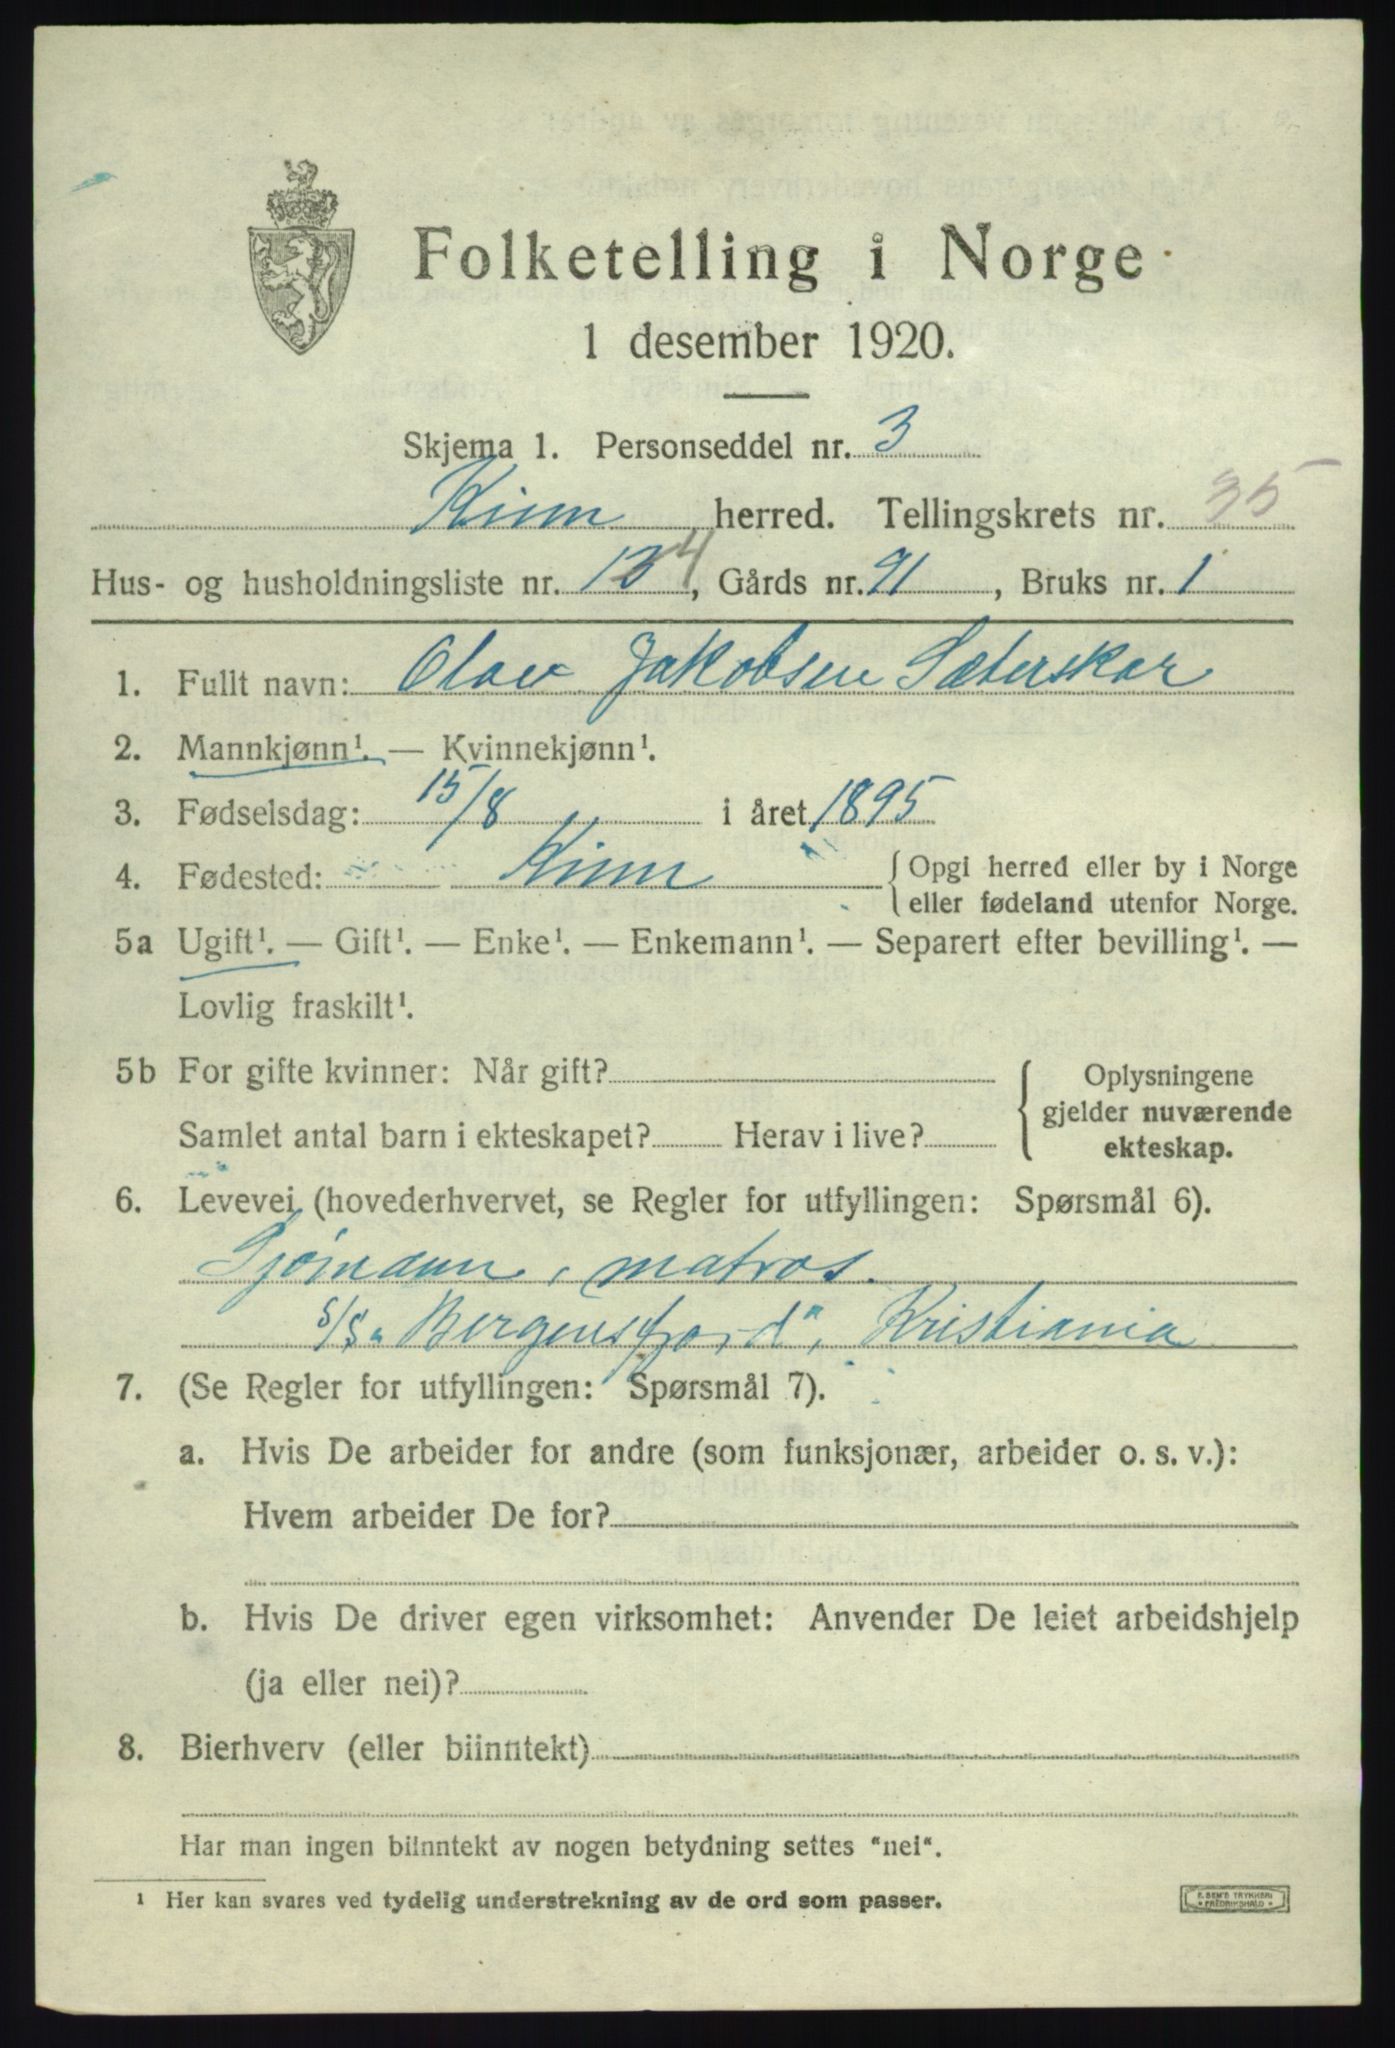 Folketelling i Norge
1 desember 1920.
Skjema 1. Personseddel nr. 3
Kinn herred. Tellingskrets nr. 35
Hus- og husholdningsliste nr. 134, Gårds nr. 91, Bruks nr. 1
1. Fullt navn: Olav Jakobsen Sæterskar
2. Mannkjønn¹. — Kvinnekjønn¹.
3. Fødselsdag: 15/8 i året 1895
4. Fødested: Kinn { Opgi herred eller by i Norge
eller fødeland utenfor Norge.
5a Ugift¹. — Gift¹. — Enke¹. — Enkemann¹. — Separert efter bevilling¹. —
Lovlig fraskilt¹.
5b For gifte kvinner: Når gift?
Samlet antal barn i ekteskapet? Herav i live?
{ Oplysningene
gjelder nuværende
ekteskap.
6. Levevei (hovederhvervet, se Regler for utfyllingen: Spørsmål 6).
Sjømann, matros.
S/S „Bergensfjord", Kristiania
7. (Se Regler for utfyllingen: Spørsmål 7).
a. Hvis De arbeider for andre (som funksjonær, arbeider o. s. v.):
Hvem arbeider De for?
b. Hvis De driver egen virksomhet: Anvender De leiet arbeidshjelp
(ja eller nei)?
8. Bierhverv (eller biinntekt)
Har man ingen biinntekt av nogen betydning settes "nei".
¹ Her kan svares ved tydelig understrekning av de ord som passer.
E. SEM'S TRYKKERI
FREDRIKSHALD